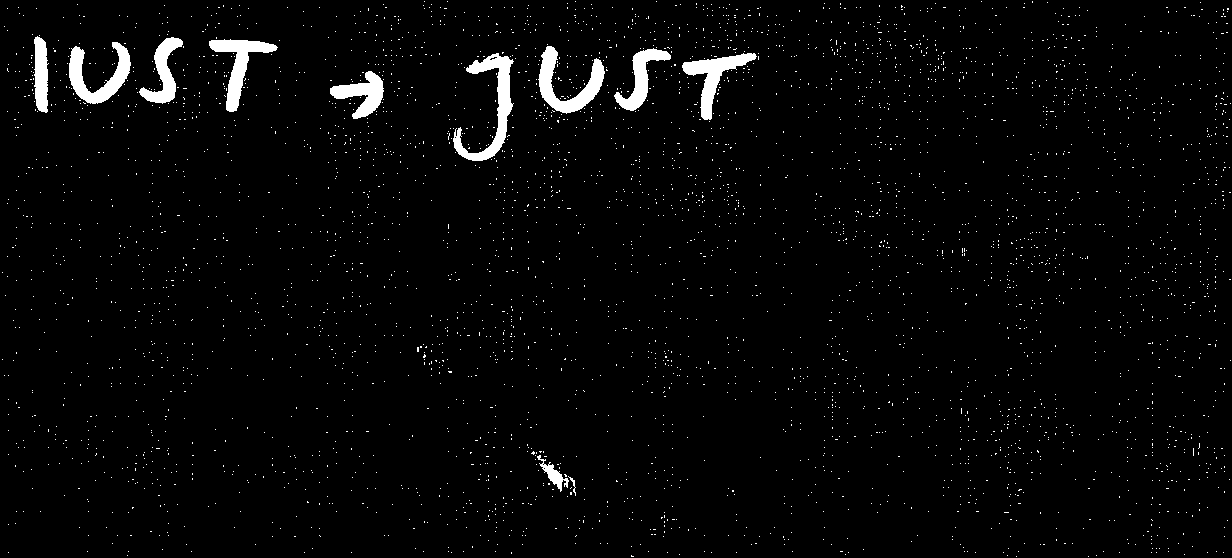 IUST → JUST